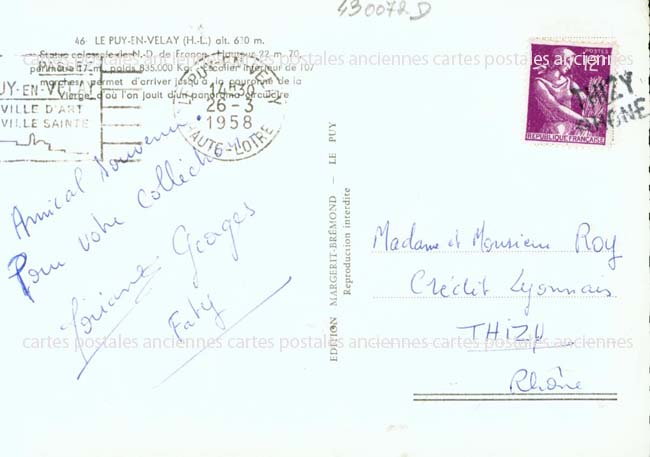 430072D
46 LE PUY-EN-VELAY (H.-L.) alt. 630 m.
Statue colossale de N.-D. de France - Hauteur 22 m. 70
périmètre 17 m. poids 835.000 Kg. Escalier intérieur de 107
marches permet d'arriver jusqu'à la couronne de la
Vierge d'où l'on jouit d'un panorama circulaire
PUY-EN-VELAY
VILLE D'ART
VILLE SAINTE
LE PUY-EN-VELAY
14H30
26-3
1958
HAUTE-LOIRE
Amical Souvenir.
Pour votre collection
Georges
Faty
EDITION MARGERIT-BRÉMOND - LE PUY
Reproduction interdite
POSTES
12F
REPUBLIQUE FRANÇAISE
THIZY
RHONE
Madame et Monsieur Roy
Crédit Lyonnais
THIZY
Rhône
cartes postales anciennes cartes postales anciennes cartes postales anciennes
cartes postales anciennes cartes postales anciennes cartes postales anciennes